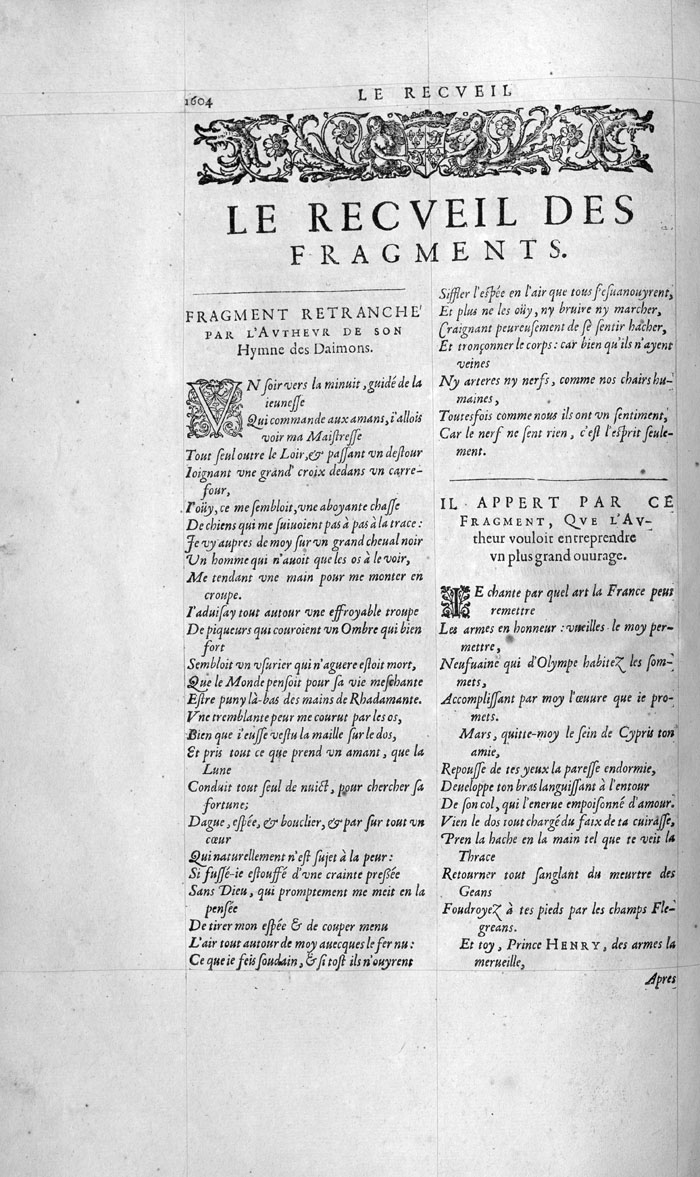 1604
LE RECVEIL
LE RECVEIL DES
FRAGMENTS.
FRAGMENT RETRANCHE'
PAR L'AVTHEVR DE SON
Hymne des Daimons.
VN soir vers la minuit, guidé de la
ieunesse
Qui commande aux amans, i'allois
voir ma Maistresse
Tout seul outre le Loir, & passant vn destour
Ioignant vne grand' croix dedans vn carre-
four,
I'oüy, ce me sembloit, vne aboyante chasse
De chiens qui me suiuoient pas à pas à la trace:
Ie vy aupres de moy sur vn grand cheual noir
Vn homme qui n'auoit que les os à le voir,
Me tendant vne main pour me monter en
croupe.
I'aduisay tout autour vne effroyable troupe
De piqueurs qui couroient vn Ombre qui bien
fort
Sembloit vn vsurier qui n'aguere estoit mort,
Que le Monde pensoit pour sa vie meschante
Estre puny là-bas des mains de Rhadamante.
Vne tremblante peur me courut par les os,
Bien que i'eusse vestu la maille sur le dos,
Et pris tout ce que prend vn amant, que la
Lune
Conduit tout seul de nuict, pour chercher sa
fortune;
Dague, espée, & bouclier, & par sur tout vn
cœur
Qui naturellement n'est sujet à la peur:
Si fussé-ie estouffé d'vne crainte preßée
Sans Dieu, qui promptement me meit en la
pensée
De tirer mon espée & de couper menu
L'air tout autour de moy auecques le fer nu:
Ce que ie feis soudain, & si tost ils n'ouyrent
Siffler l'espée en l'air que tous s'esuanouyrent,
Et plus ne les oüy, ny bruire ny marcher,
Craignant peureusement de se sentir hacher,
Et tronçonner le corps: car bien qu'ils n'ayent
veines
Ny arteres ny nerfs, comme nos chairs hu-
maines,
Toutesfois comme nous ils ont vn sentiment,
Car le nerf ne sent rien, c'est l'esprit seule-
ment.
IL APPERT PAR CE
FRAGMENT, QVE L'AV-
theur vouloit entreprendre
vn plus grand ouurage.
IE chante par quel art la France peut
remettre
Les armes en honneur: vueilles le moy per-
mettre,
Neufuaine qui d'Olympe habitez les som-
mets,
Accomplissant par moy l'œuure que ie pro-
mets.
Mars, quitte-moy le sein de Cypris ton
amie,
Repousse de tes yeux la paresse endormie,
Deueloppe ton bras languissant à l'entour
De son col, qui l'enerue empoisonné d'amour.
Vien le dos tout chargé du faix de ta cuirasse,
Pren la hache en la main tel que te veit la
Thrace
Retourner tout sanglant du meurtre des
Geans
Foudroyez à tes pieds par les champs Fle-
greans.
Et toy, Prince HENRY, des armes la
merueille,
Apres